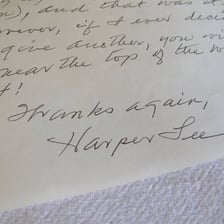 ), and that was
, if I ever deci
give another, you wi
near the top of the
t!
Thanks again,
Harper Lee